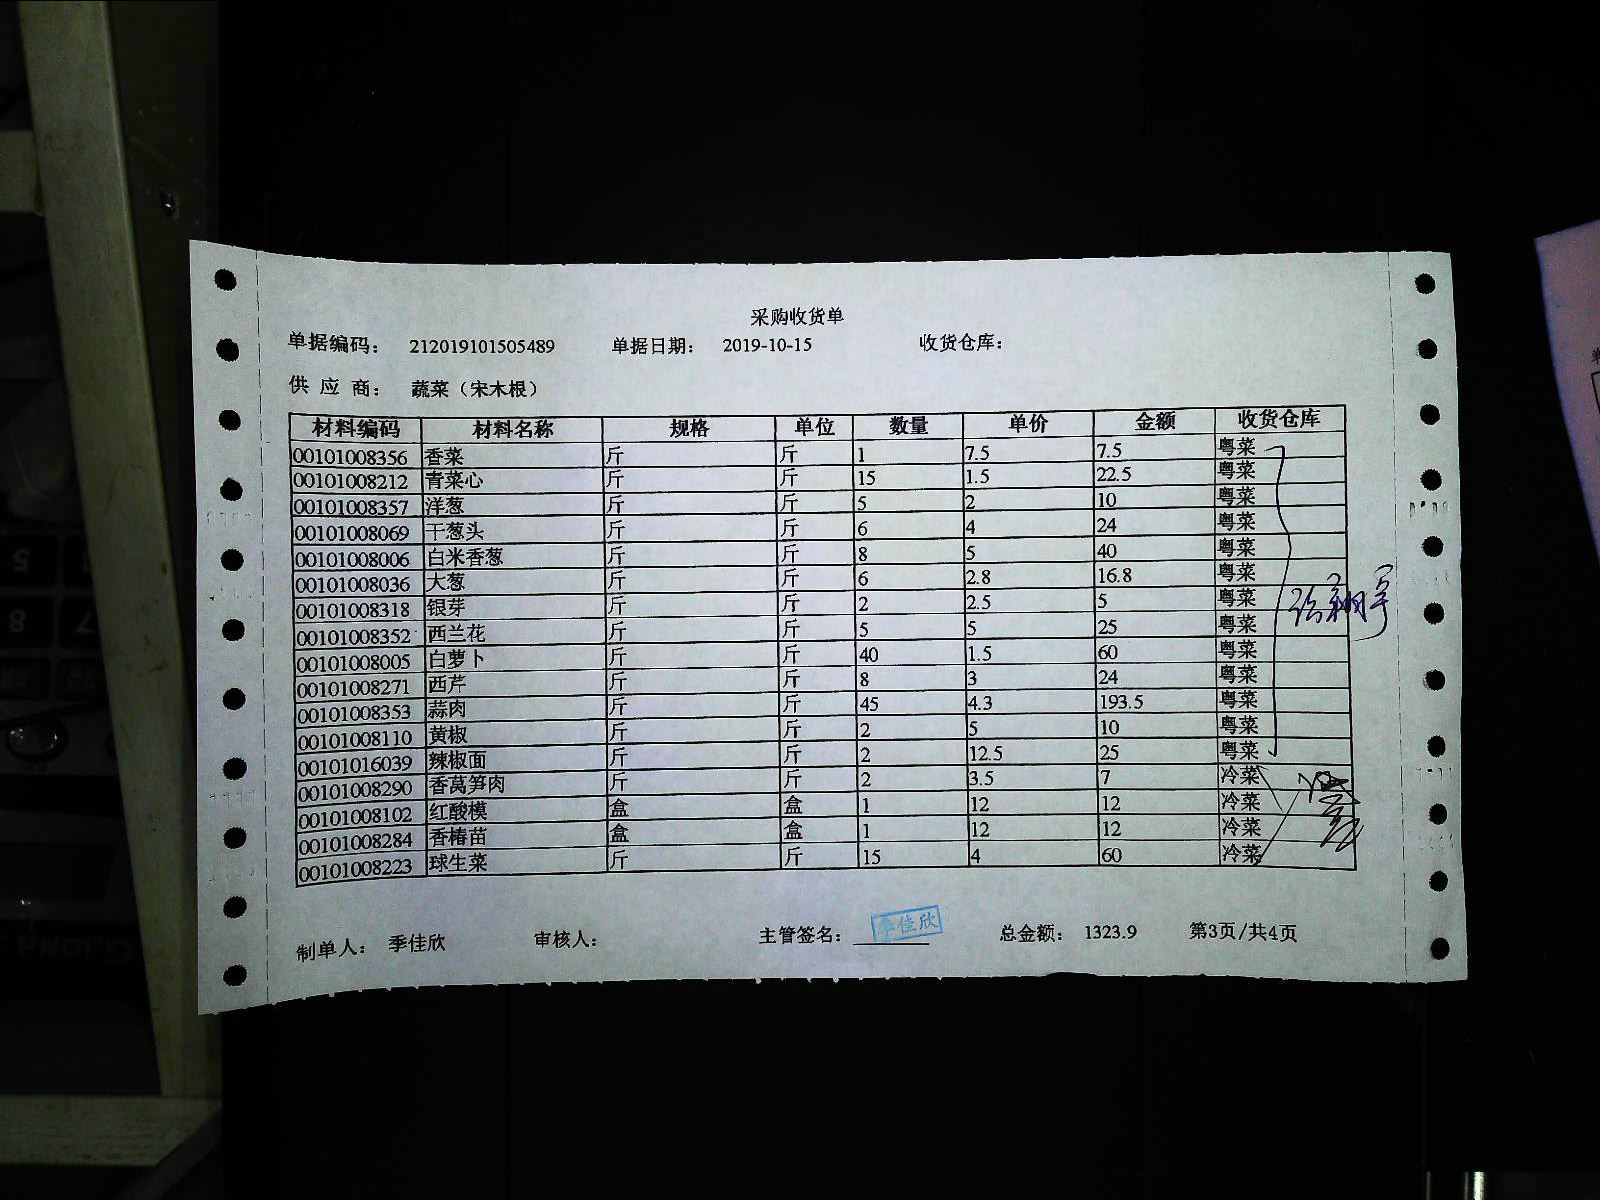 采购收货单
单据编码： 212019101505489 单据日期： 2019-10-15 收货仓库：
供 应 商： 蔬菜（宋木根）
材料编码 材料名称 规格 单位 数量 单价 金额 收货仓库
00101008356 香菜 斤 斤 1 7.5 7.5 粤菜
00101008212 青菜心 斤 斤 15 1.5 22.5 粤菜
00101008357 洋葱 斤 斤 5 2 10 粤菜
00101008069 干葱头 斤 斤 6 4 24 粤菜
00101008006 白米香葱 斤 斤 8 5 40 粤菜
00101008036 大葱 斤 斤 6 2.8 16.8 粤菜
00101008318 银芽 斤 斤 2 2.5 5 粤菜
00101008352 西兰花 斤 斤 5 5 25 粤菜
00101008005 白萝卜 斤 斤 40 1.5 60 粤菜
00101008271 西芹 斤 斤 8 3 24 粤菜
00101008353 蒜肉 斤 斤 45 4.3 193.5 粤菜
00101008110 黄椒 斤 斤 2 5 10 粤菜
00101016039 辣椒面 斤 斤 2 12.5 25 粤菜
00101008290 香莴笋肉 斤 斤 2 3.5 7 冷菜
00101008102 红酸模 盒 盒 1 12 12 冷菜
00101008284 香椿苗 盒 盒 1 12 12 冷菜
00101008223 球生菜 斤 斤 15 4 60 冷菜
制单人： 季佳欣 审核人： 主管签名： 季佳欣 总金额： 1323.9 第3页/共4页